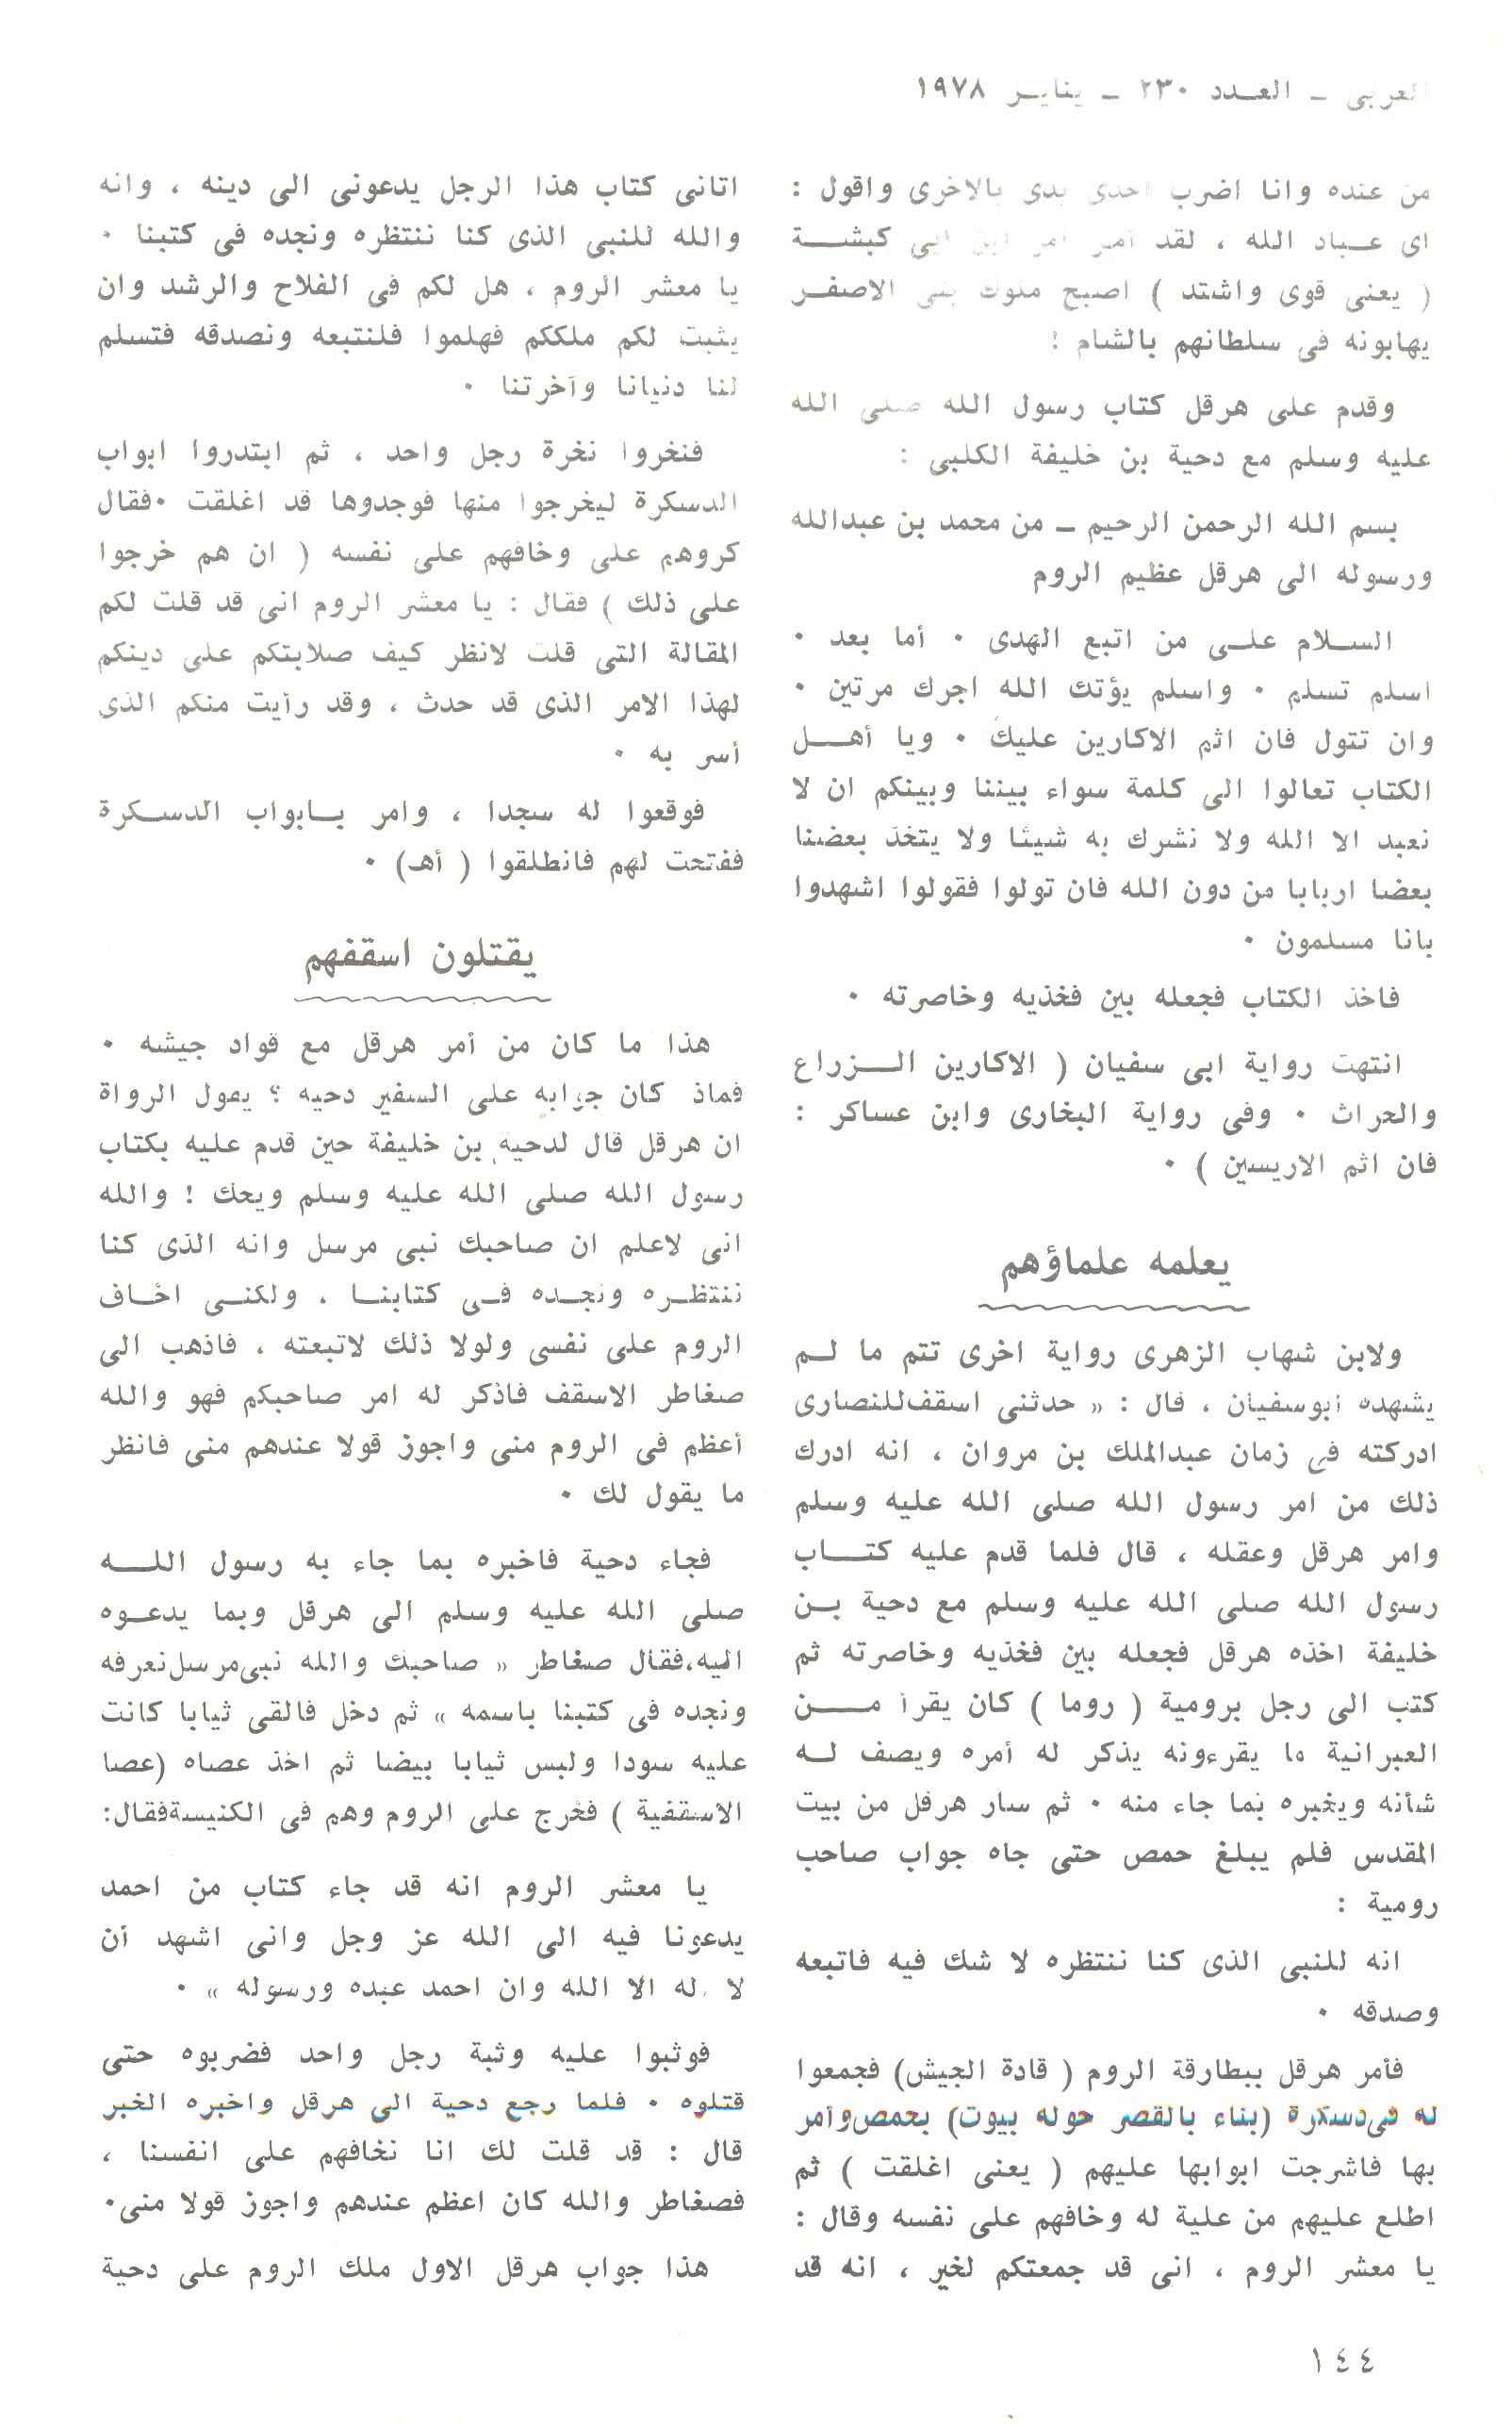 العربى ـ العـدد ٢٣٠ ـ ينايـر ١٩٧٨
من عنده وانا اضرب احدى يدى بالاخرى واقول :
اى عـباد الله ، لقد أمر امر ابن ابى كبشـــة
( يعنى قوى واشتد ) اصبح ملوك بنى الاصفـر
يهابونه فى سلطانهم بالشام !
وقدم على هرقل كتاب رسول الله صلى الله
عليه وسلم مع دحية بن خليفة الكلبى :
بسم الله الرحمن الرحيم ـ من محمد بن عبدالله
ورسوله الى هرقل عظيم الروم
السـلام علـى من اتبع الهدى ٠ أما بعد ٠
اسلم تسلم ٠ واسلم يؤتك الله اجرك مرتين ٠
وان تتول فان اثم الاكارين عليك ٠ ويا أهـــل
الكتاب تعالوا الى كلمة سواء بيننا وبينكم ان لا
نعبد الا الله ولا نشرك به شيئا ولا يتخذ بعضنا
بعضا اربابا من دون الله فان تولوا فقولوا اشهدوا
بانا مسلمون ٠
فاخذ الكتاب فجعله بين فخذيه وخاصرته ٠
انتهت رواية ابى سفيان ( الاكارين الـــزراع
والحراث ٠ وفى رواية البخارى وابن عساكر :
فان اثم الاريسين ) ٠
يعلمه علماؤهم
ولابن شهاب الزهرى رواية اخرى تتم ما لـم
يشهده أبوسفيان ، قال : « حدثنى اسقفللنصارى
ادركته فى زمان عبدالملك بن مروان ، انه ادرك
ذلك من امر رسول الله صلى الله عليه وسلم
وامر هرقل وعقله ، قال فلما قدم عليه كتـــاب
رسول الله صلى الله عليه وسلم مع دحية بـن
خليفة اخذه هرقل فجعله بين فخذيه وخاصرته ثم
كتب الى رجل برومية ( روما ) كان يقرأ مــــن
العبرانية ما يقرءونه يذكر له أمره ويصف لـه
شأنه ويخبره بما جاء منه ٠ ثم سار هرقل من بيت
المقدس فلم يبلغ حمص حتى جاه جواب صاحب
رومية :
انه للنبى الذى كنا ننتظره لا شك فيه فاتبعه
وصدقه ٠
فأمر هرقل ببطارقة الروم ( قادة الجيش) فجمعوا
له فىدسكرة (بناء بالقصر حوله بيوت) بحمصوأمر
بها فاشرجت ابوابها عليهم ( يعنى اغلقت ) ثم
اطلع عليهم من علية له وخافهم على نفسه وقال :
يا معشر الروم ، انى قد جمعتكم لخير ، انه قد
اتانى كتاب هذا الرجل يدعونى الى دينه ، وانه
والله للنبى الذى كنا ننتظره ونجده فى كتبنا ٠
يا معشر الروم ، هل لكم فى الفلاح والرشد وان
يثبت لكم ملككم فهلموا فلنتبعه ونصدقه فتسلم
لنا دنيانا وآخرتنا ٠
فنخروا نخرة رجل واحد ، ثم ابتدروا ابواب
الدسكرة ليخرجوا منها فوجدوها قد اغلقت ٠فقال
كروهم على وخافهم على نفسه ( ان هم خرجوا
على ذلك ) فقال : يا معشر الروم انى قد قلت لكم
المقالة التى قلت لانظر كيف صلابتكم على دينكم
لهذا الامر الذى قد حدث ، وقد رأيت منكم الذى
أسر به ٠
فوقعوا له سجدا ، وامر بـابواب الدسـكرة
ففتحت لهم فانطلقوا ( أهـ) ٠
يقتلون اسقفهم
هذا ما كان من أمر هرقل مع قواد جيشه ٠
فماذ كان جوابه على السفير دحيه ؟ يقول الرواة
ان هرقل قال لدحية بن خليفة حين قدم عليه بكتاب
رسول الله صلى الله عليه وسلم ويحك ! والله
انى لاعلم ان صاحبك نبى مرسل وانه الذى كنا
ننتظـره ونجـده فـى كتابنـا ، ولكنـى اخـاف
الروم على نفسى ولولا ذلك لاتبعته ، فاذهب الى
صغاطر الاسقف فاذكر له امر صاحبكم فهو والله
أعظم فى الروم منى واجوز قولا عندهم منى فانظر
ما يقول لك ٠
فجاء دحية فاخبره بما جاء به رسول اللــه
صلى الله عليه وسلم الى هرقل وبما يدعـوه
اليه،فقال صغاطر « صاحبك والله نبىمرسلنعرفه
ونجده فى كتبنا باسمه » ثم دخل فالقى ثيابا كانت
عليه سودا ولبس ثيابا بيضا ثم اخذ عصاه (عصا
الاسقفية ) فخرج على الروم وهم فى الكنيسةفقال:
يا معشر الروم انه قد جاء كتاب من احمد
يدعونا فيه الى الله عز وجل وانى اشهد أن
لا اله الا الله وان احمد عبده ورسوله » ٠
فوثبوا عليه وثبة رجل واحد فضربوه حتى
قتلوه ٠ فلما رجع دحية الى هرقل واخبره الخبر
قال : قد قلت لك انا نخافهم على انفسنا ،
فصغاطر والله كان اعظم عندهم واجوز قولا منى٠
هذا جواب هرقل الاول ملك الروم على دحية
١٤٤